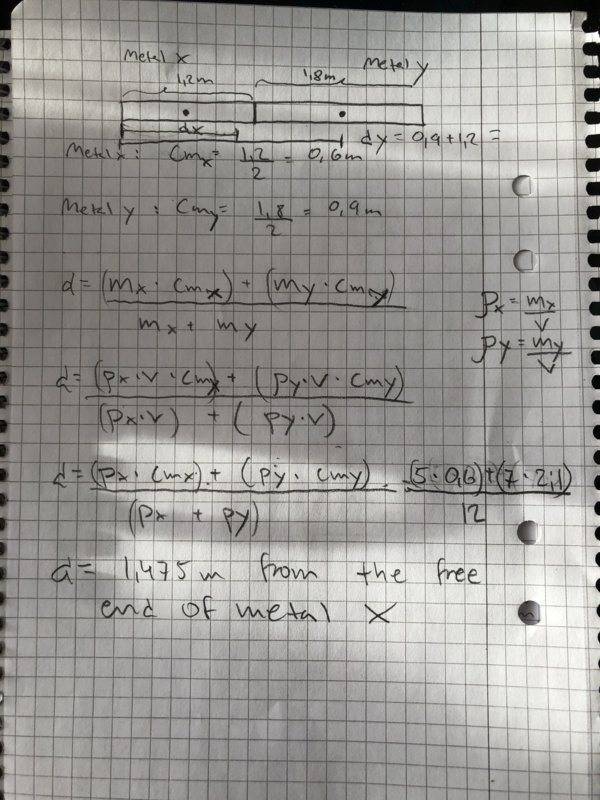 Metal x
Metal y
1,2m
1,8m
dx
dy = 0,9+1,2 =
Metal x : Cmx = 1,2/2 = 0,6m
Metal y : Cmy = 1,8/2 = 0,9m
d = (mx · Cmx) + (my · Cmy) / mx + my
ρx = mx/V
ρy = my/V
d = (ρx·V·Cmx) + (ρy·V·Cmy) / (ρx·V) + (ρy·V)
d = (ρx · Cmx) + (ρy · Cmy) / (ρx + ρy) = (5·0,6)+(7·2,1) / 12
d = 1,475 m from the free
end of metal X